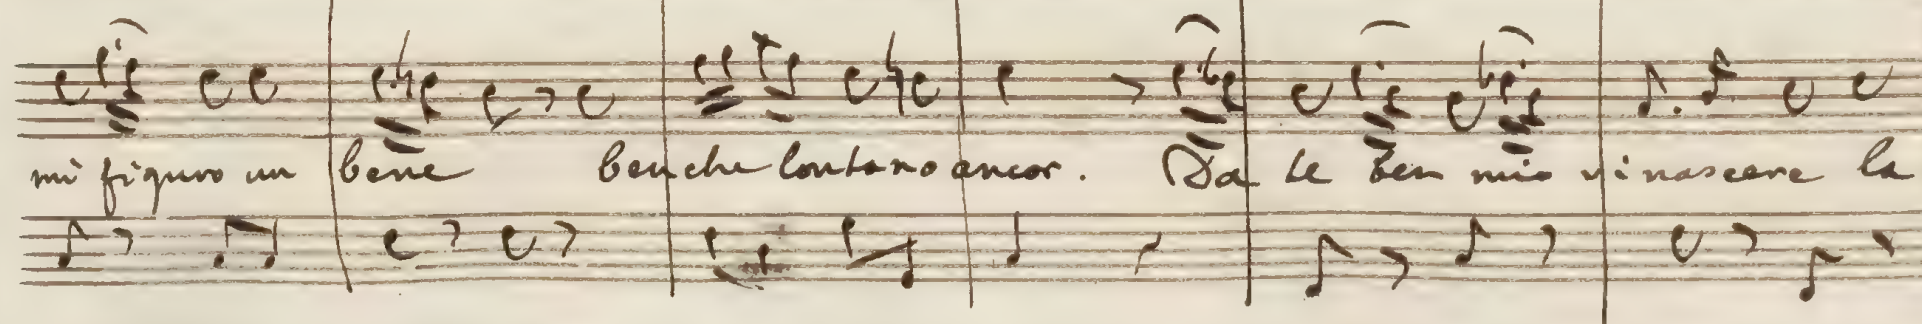 mi figuro un bene benche lontano ancor. Da te ben mio rinascere la